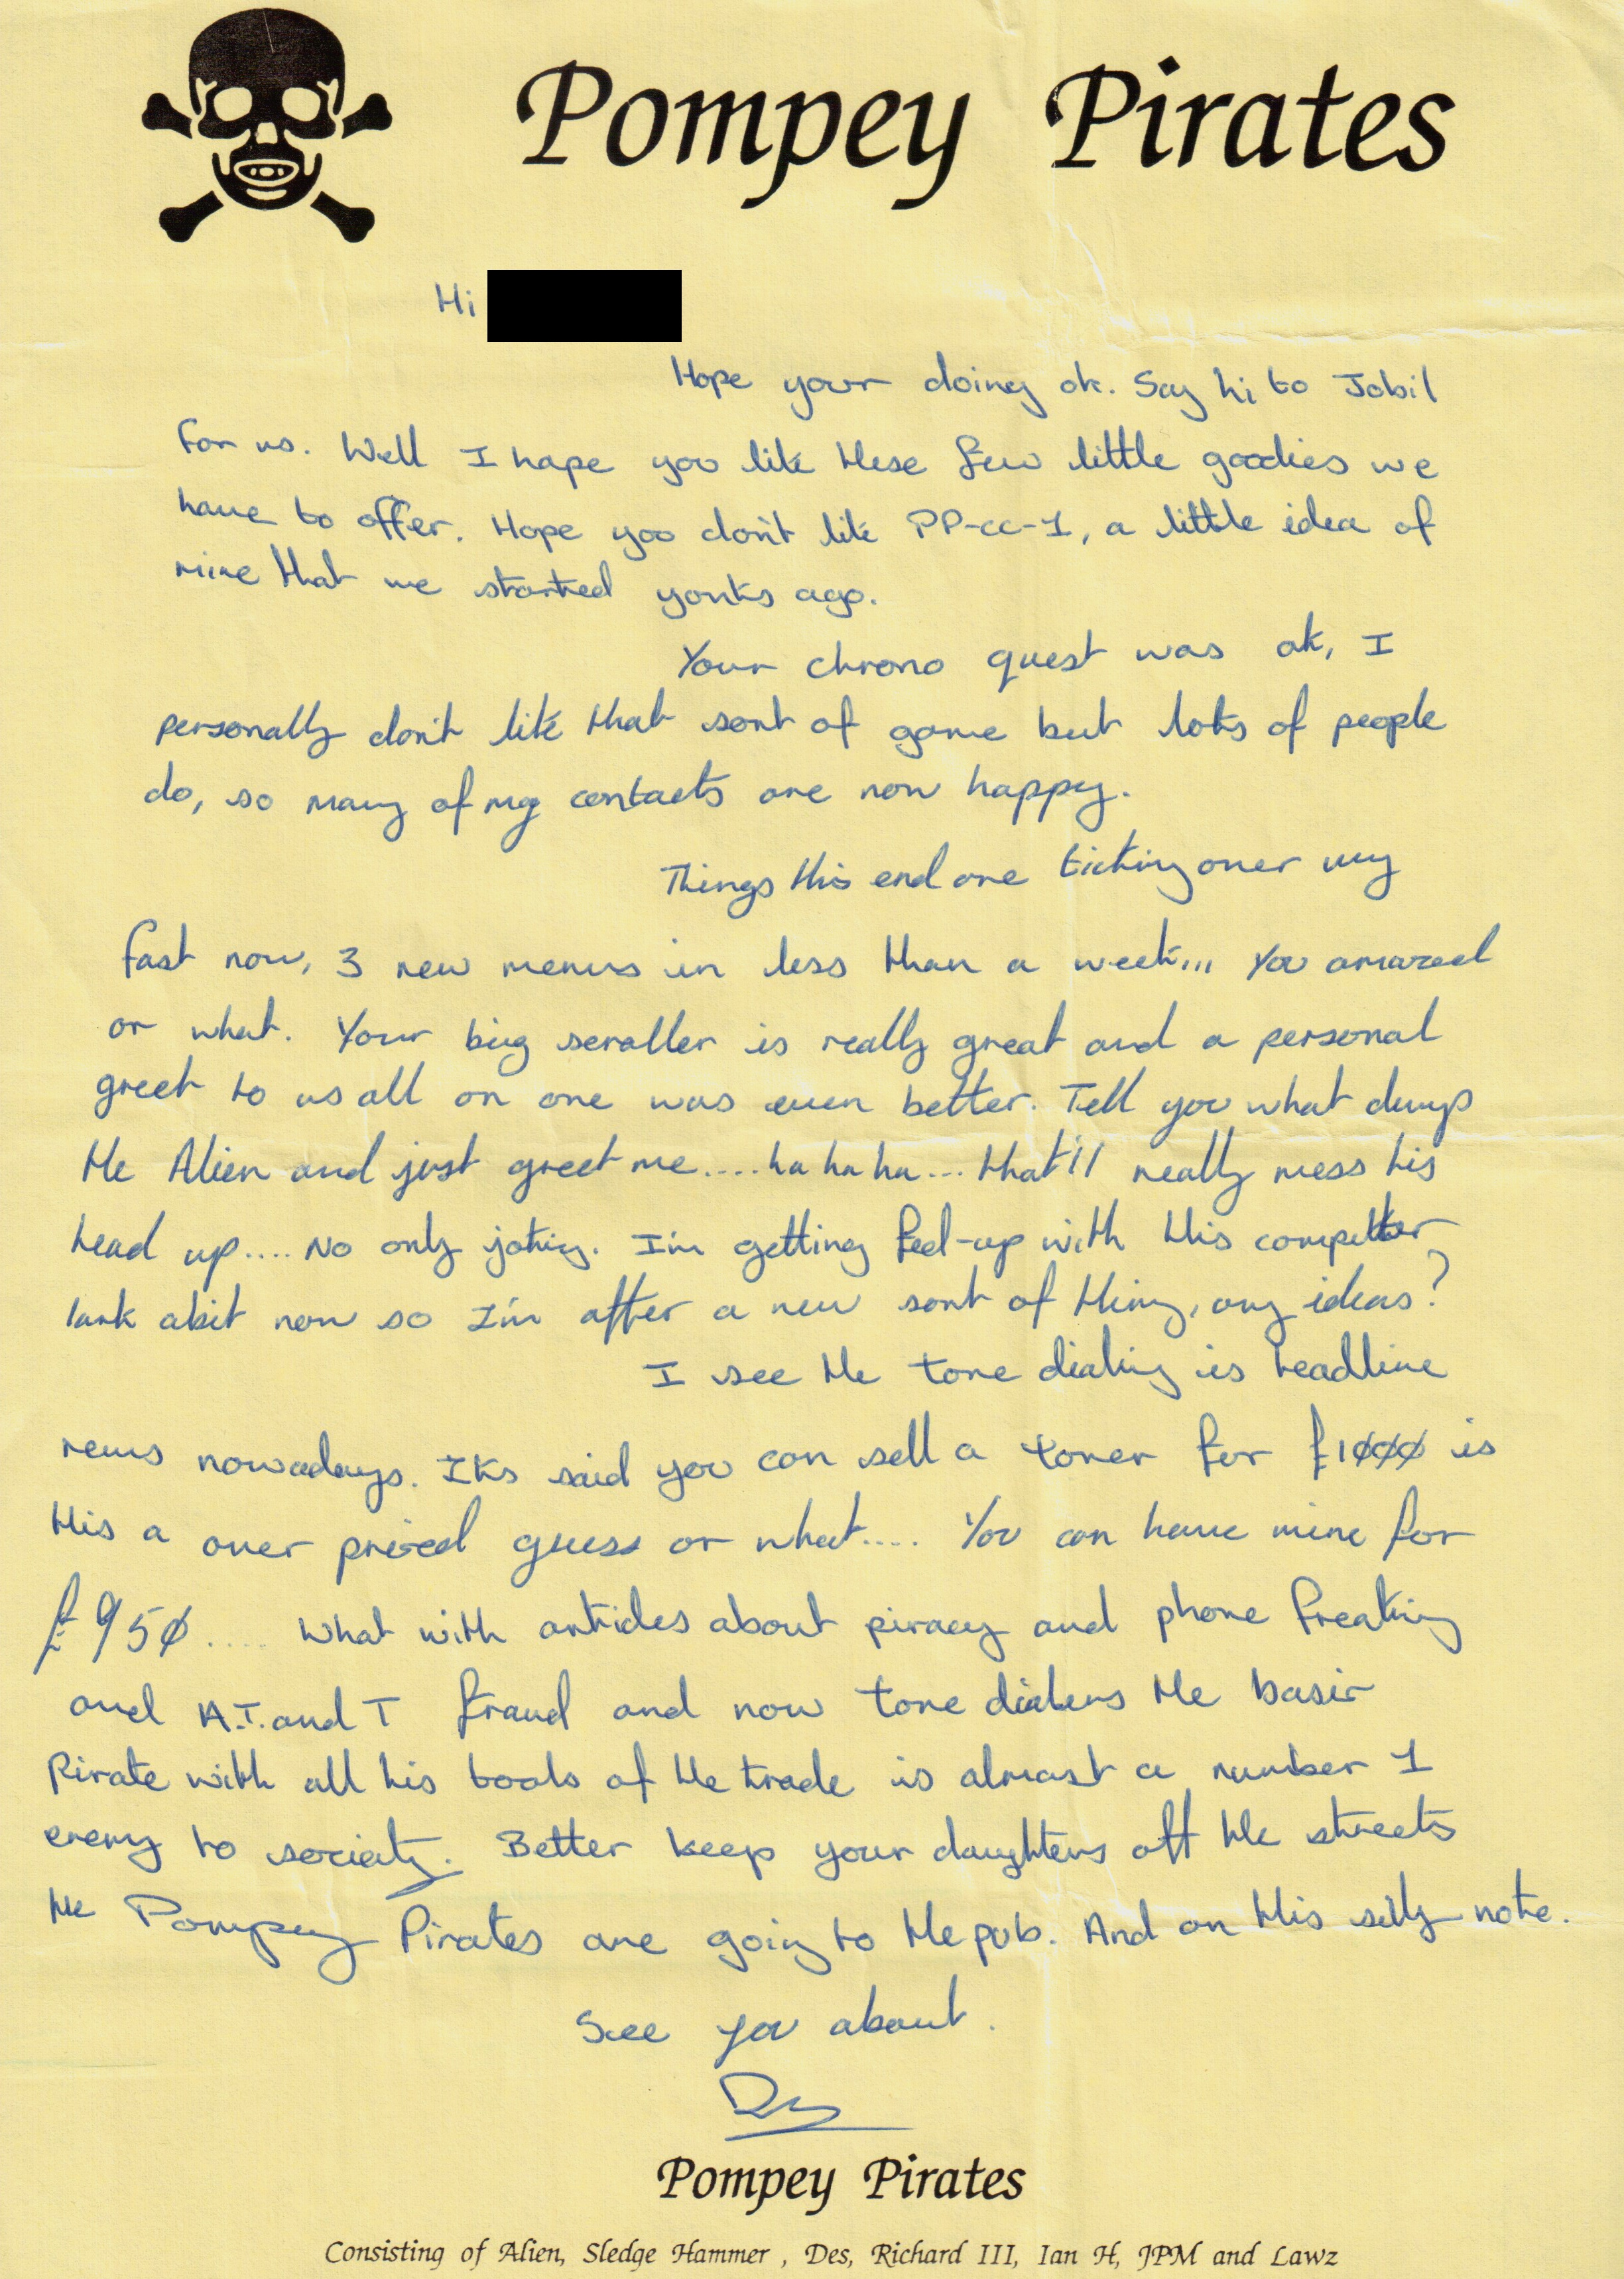 Pompey Pirates
Hi
Hope your doing ok. Say hi to Jobil
for us. Well I hope you like these few little goodies we
have to offer. Hope you don't like PP-cc-1, a little idea of
mine that we started yonks ago.
Your chrono quest was ok, I
personally don't like that sort of game but lots of people
do, so many of my contacts are now happy.
Things this end are ticking over very
fast now, 3 new menus in less than a week... You amazed
or what. Your big scroller is really great and a personal
greet to us all on one was even better. Tell you what dump
the Alien and just greet me....ha ha ha...that'll really mess his
head up.... No only joking. I'm getting fed-up with this computer
lark abit now so I'm after a new sort of thing, any ideas?
I see the tone dialing is headline
news nowadays. Iks said you can sell a toner for £1000 is
this a over priced guess or what.... You can have mine for
£950.... What with articles about piracy and phone freaking
and A.T. and T fraud and now tone dialers the basic
Pirate with all his tools of the trade is almost a number 1
enemy to society. Better keep your daughters off the streets
the Pompey Pirates are going to the pub. And on this silly note.
See you about.
Des
Pompey Pirates
Consisting of Alien, Sledge Hammer , Des, Richard III, Ian H, JPM and Lawz